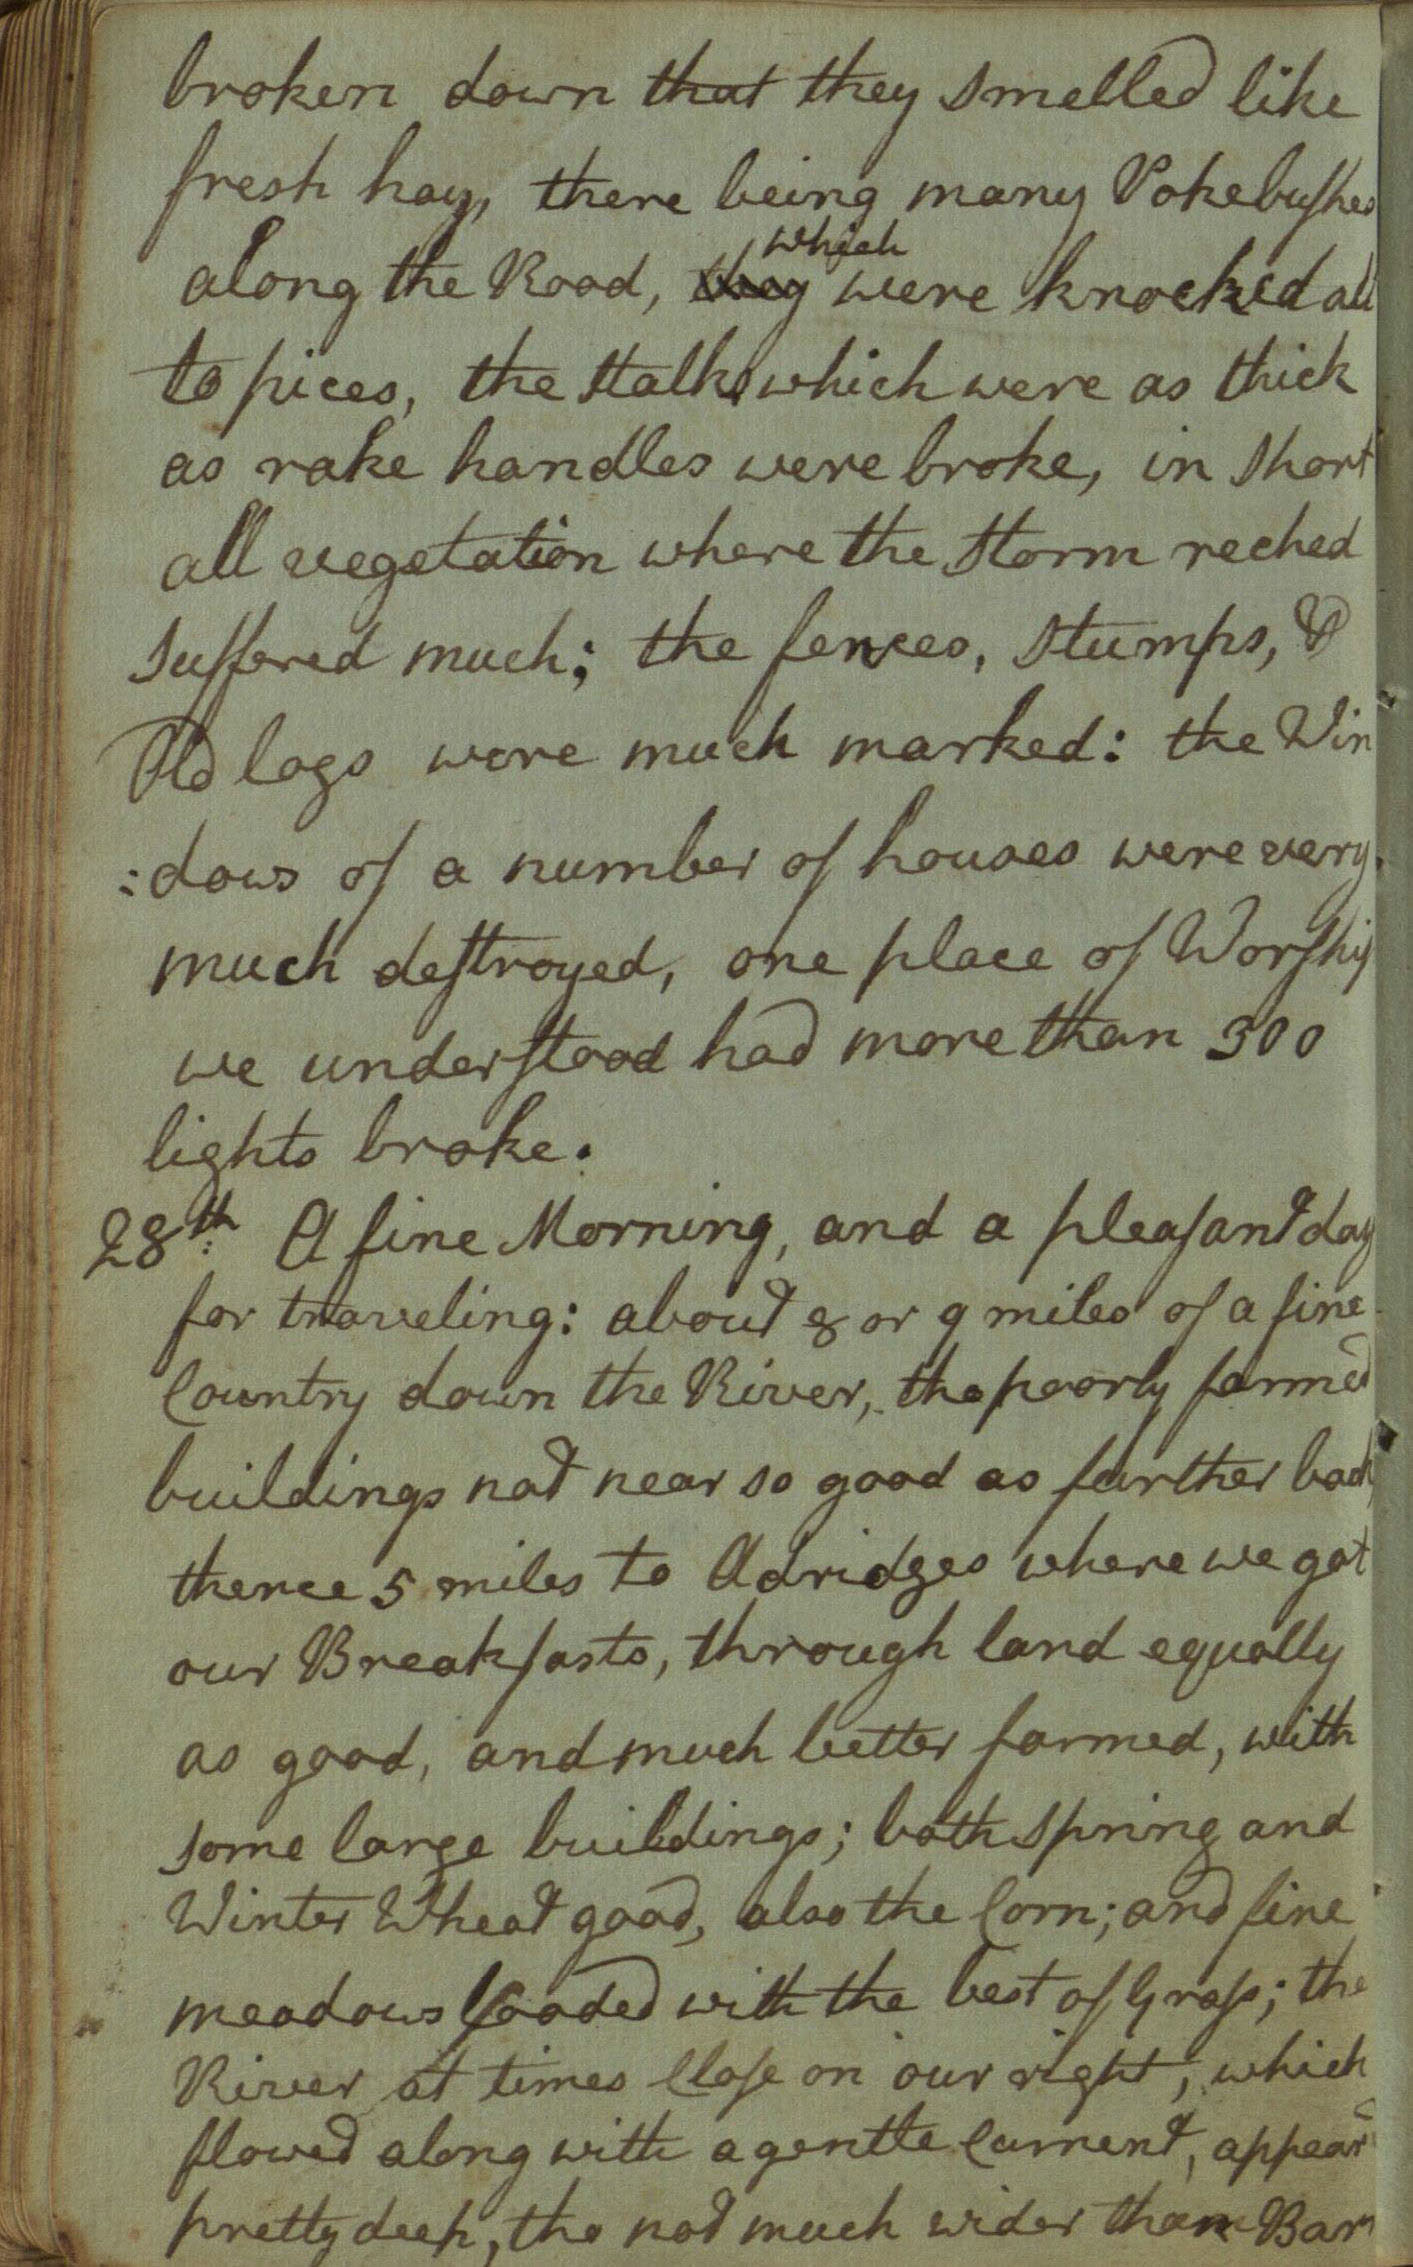 broken down that they smelled like
fresh hay, there being many Pokebushes
along the Road, which were knocked all
to pices, the stalks which were as thick
as rake handles were broke, in short
all vegetation where the storm reched
suffered much; the fences, stumps, &
Old logs were much marked: the Win
:dows of a number of houses were very
much destroyed, one place of Worship
we understood had more than 300
lights broke.
28th: A fine Morning, and a pleasant day
for traveling: about 8 or 9 miles of a fine
Country down the River, tho poorly farmed
buildings not near so good as further back,
thence 5 miles to Adridges where we got
our Breakfasts, through land equally
as good, and much better farmed, with
some large buildings; both spring and
Winter Wheat good, also the Corn; and fine
meadows loaded with the best of Grass; the
River at times Close on our right, which
flowed along with a gentle Current, appear'd
pretty deep, tho not much wider than